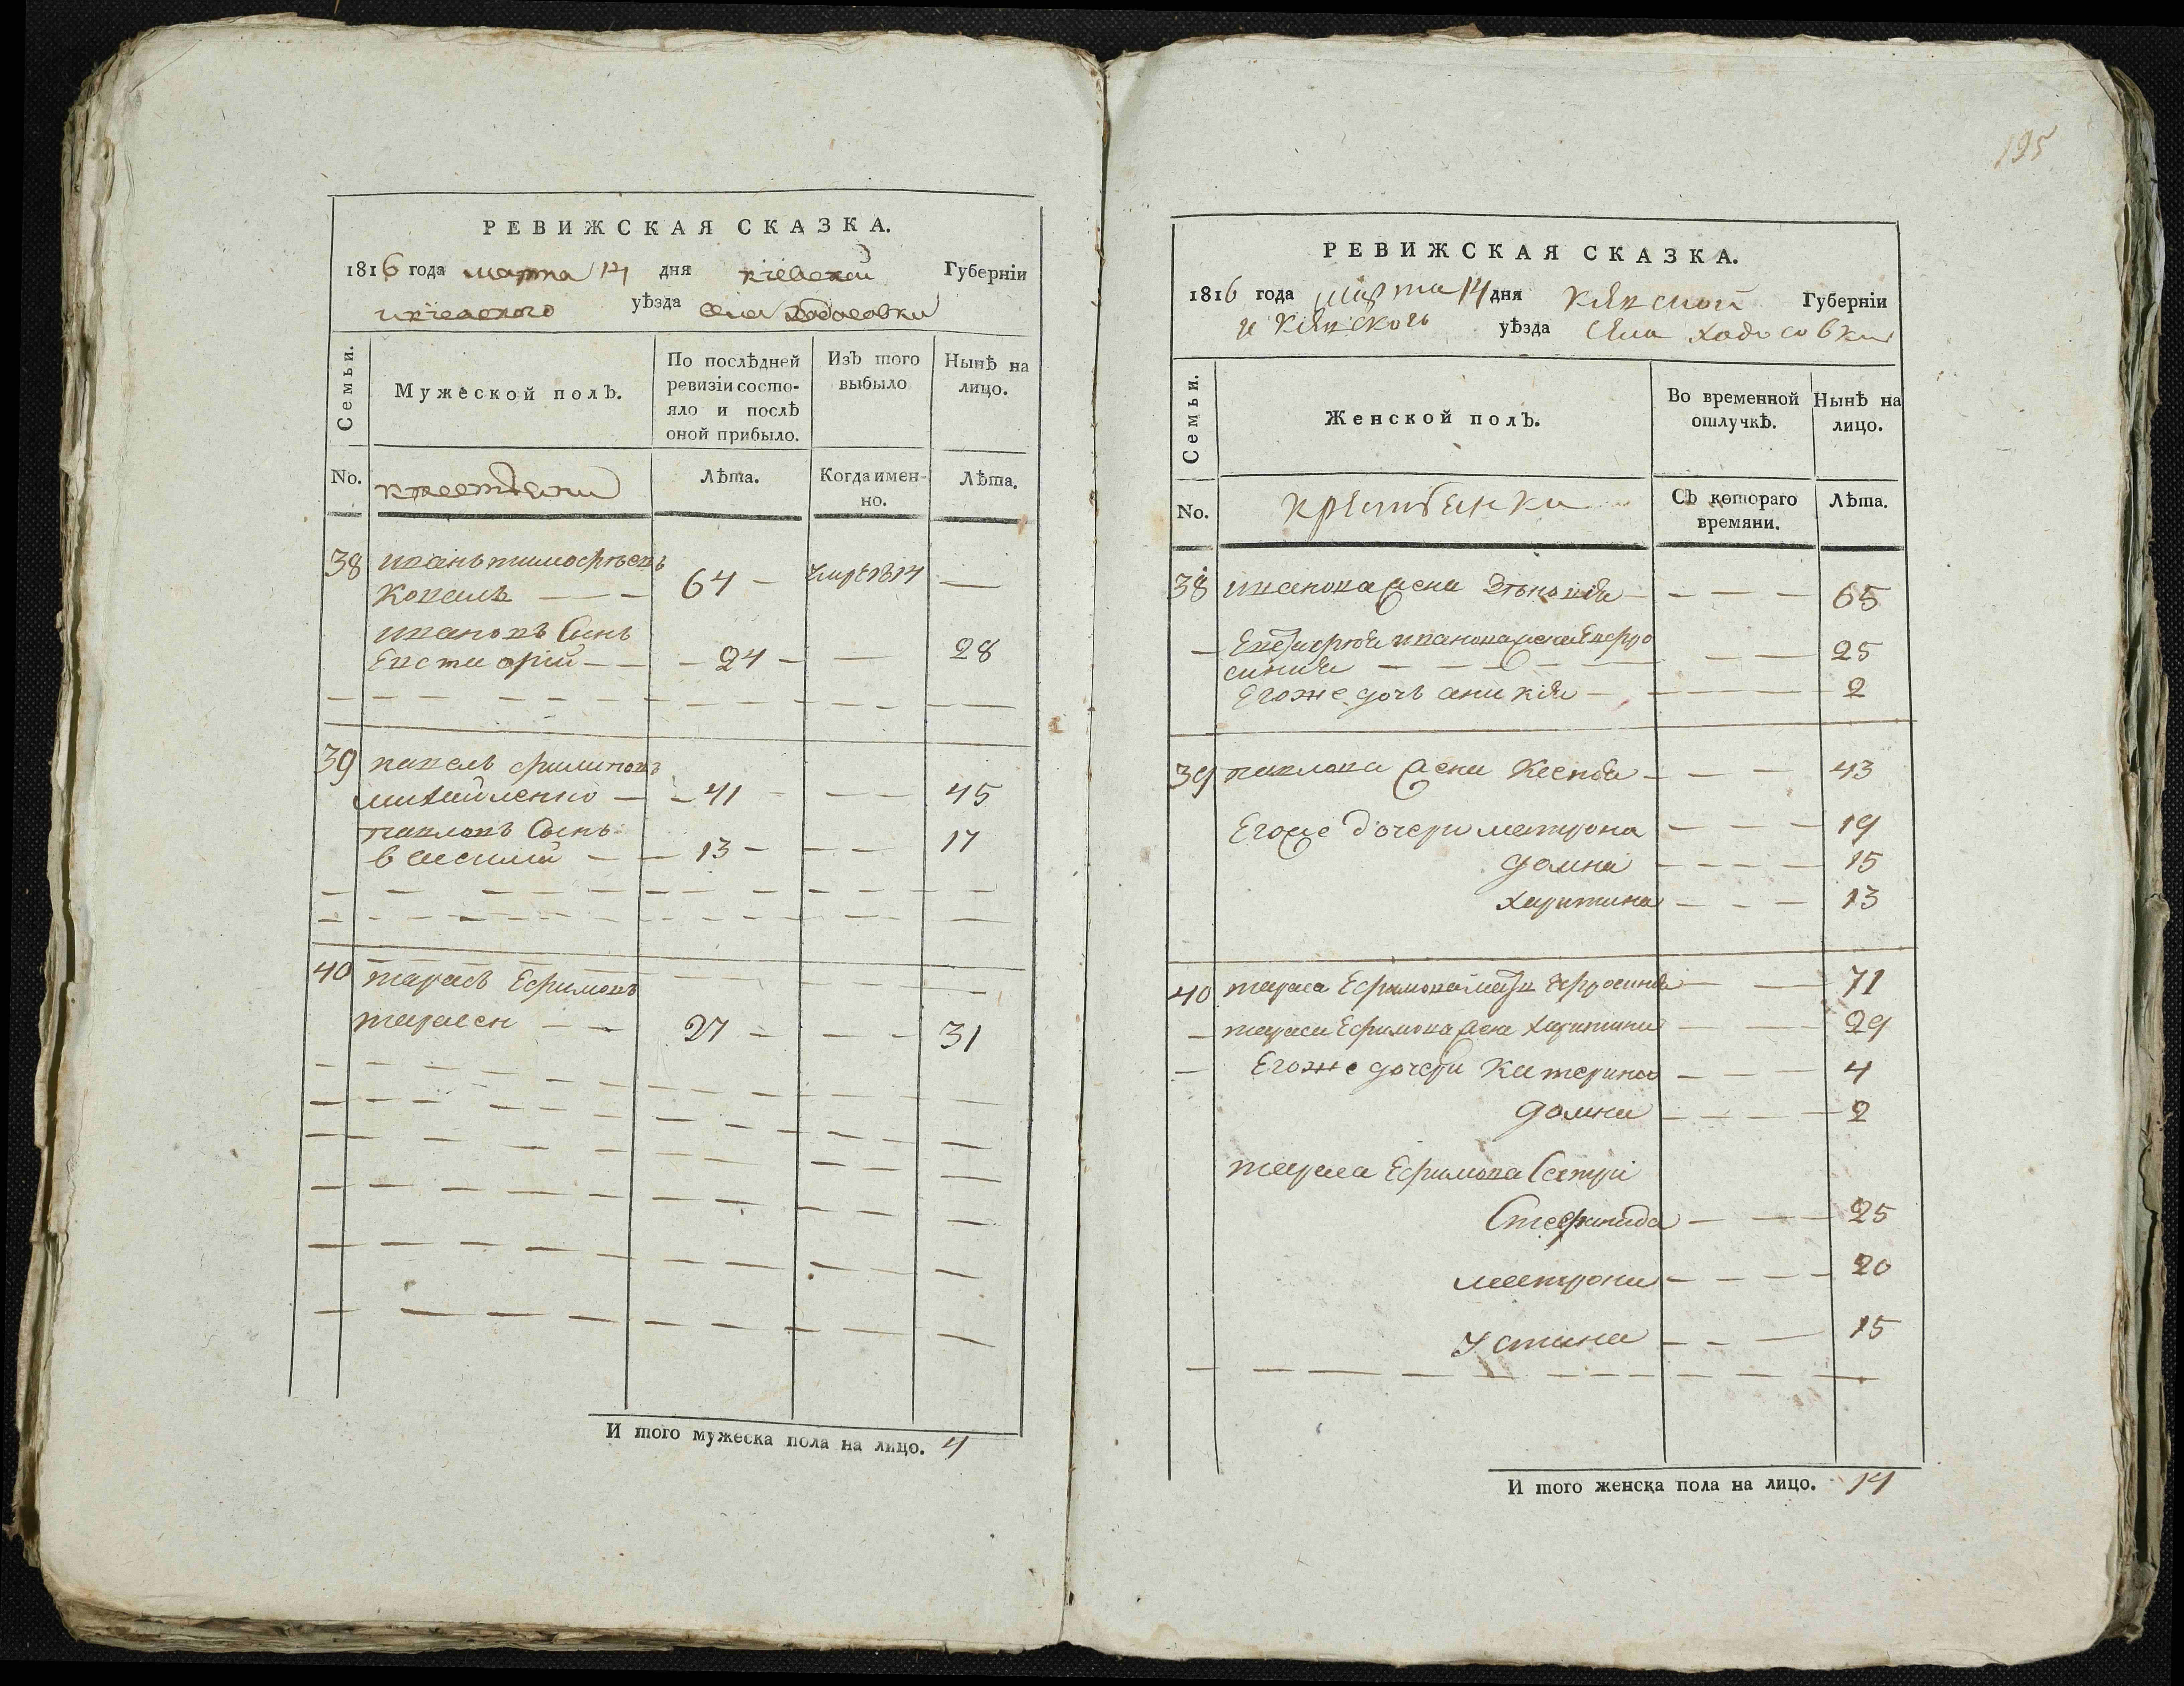 РЕВИЖСКАЯ СКАЗКА.
1816 года марта 14 дня кіевской Губерніи
и кіевского уѣзда села Ходосовки
Семьи.
Мужеской полъ.
По послѣдней
ревизіи состо-
яло и послѣ
оной прибыло.
Изъ того
выбыло
Нынѣ на
лицо.
No. крестьяни
Лѣта.
Когда имен-
но.
Лѣта.
38 иванъ тимофѣевъ
коваль — — 64 — умре 1814 —
ивановъ Синъ
Евстафій — — — 24 — — 28
39 павелъ филиповъ
михайленко — — 41 — — 45
павловъ Синъ
василій — — 13 — — — 17
40 тарасъ Ефимовъ
тарасен — — 27 — — — 31
И того мужеска пола на лицо. 4
195
РЕВИЖСКАЯ СКАЗКА.
1816 года марта 14 дня Кіевской Губерніи
и Кіевскогь уѣзда Села Ходосовки
Семьи.
Женской полъ.
Во временной
отлучкѣ.
Нынѣ на
лицо.
No. крестьянки
Съ котораго
времяни.
Лѣта.
38 иванова жена — — — 65
— Евстафія иванова жена Евфро
синия — — — — — — 25
Егоже дочь — — — — 2
39 павлова жена Ксенія — — — 43
Егоже дочери матрона — — — 19
домна — — — — 15
харитина — — — 13
40 тараса Ефимова мать Ефросиния — — 71
— тараса Ефимова жена харитина — — 29
— Егоже дочери Катерина — — 4
домна — — — — 2
тараса Ефимова Сестри
Стефанида — — — 25
матрона — — — — 20
Устина — — — 15
И того женска пола на лицо. 14